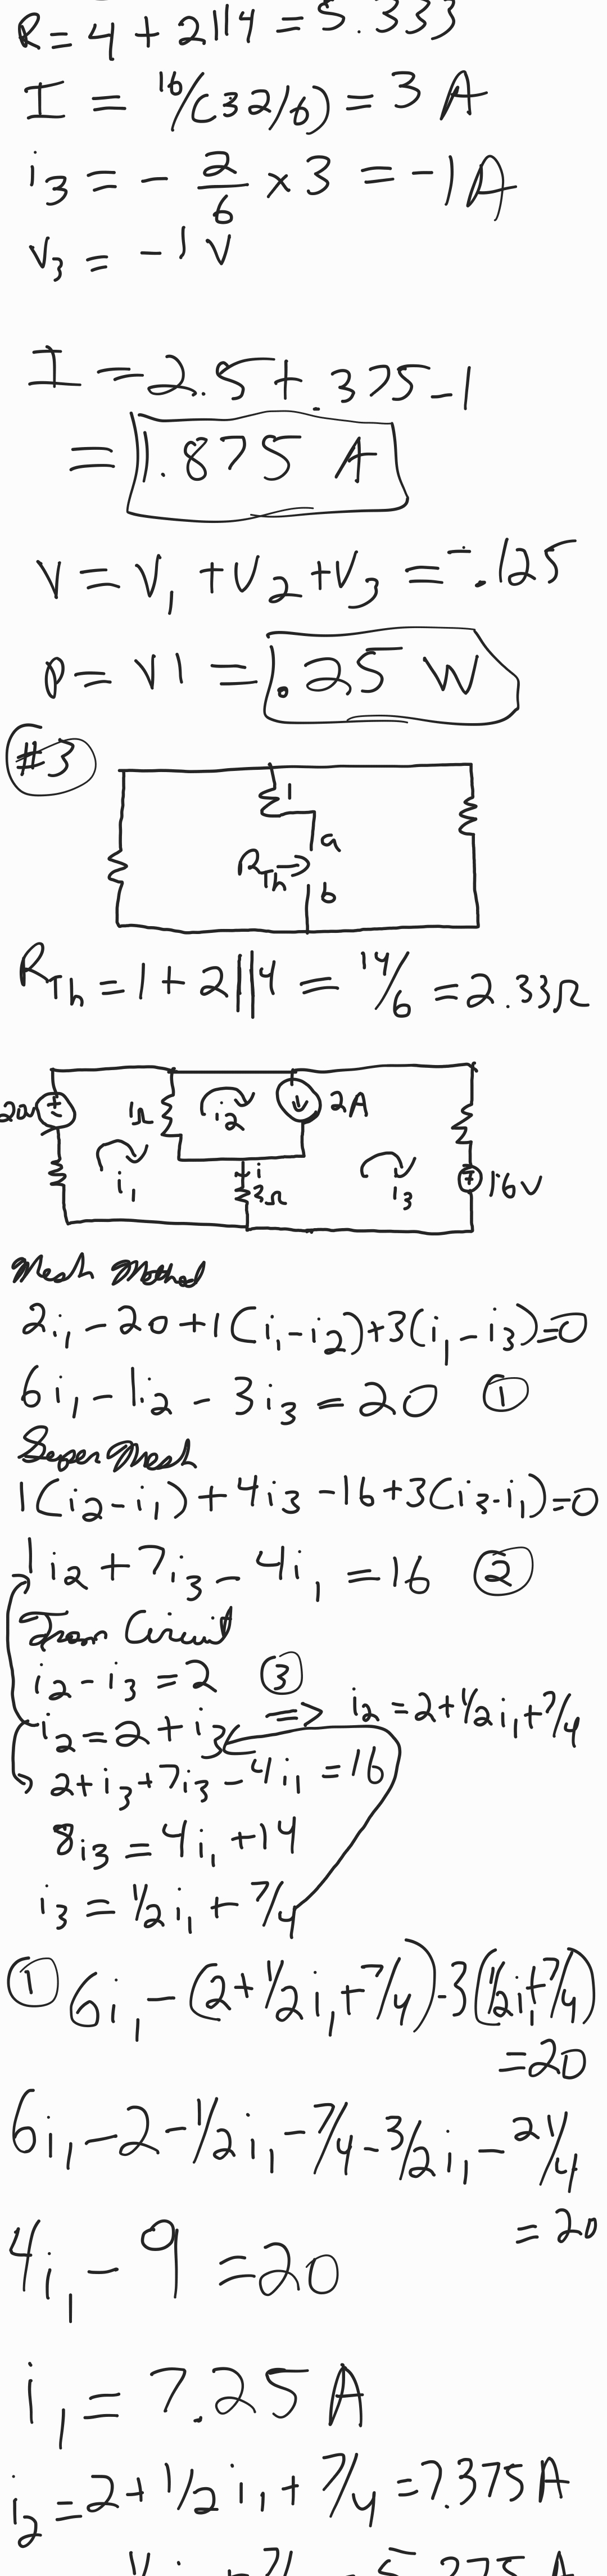 R = 4 + 2||4 = 5.333
I = 16/(32/6) = 3 A
i3 = - 2/6 × 3 = -1A
V3 = -1 V
I = 2.5 + .375 - 1
= 1.875 A
V = V1 + V2 + V3 = -.125
P = VI = .25 W
#3
1
a
RTh →
b
RTh = 1 + 2||4 = 14/6 = 2.33Ω
20v + - 1Ω i2 2A
i1 i 3Ω i3 + 16v
Mesh Method
2i1 - 20 + 1(i1 - i2) + 3(i1 - i3) = 0
6i1 - 1i2 - 3i3 = 20 ①
Super Mesh
1(i2 - i1) + 4i3 - 16 + 3(i3 - i1) = 0
1i2 + 7i3 - 4i1 = 16 ②
From Circuit
i2 - i3 = 2 ③
i2 = 2 + i3 => i2 = 2 + 1/2 i1 + 7/4
2 + i3 + 7i3 - 4i1 = 16
8i3 = 4i1 + 14
i3 = 1/2 i1 + 7/4
① 6i1 - (2 + 1/2 i1 + 7/4) - 3(1/2 i1 + 7/4)
= 20
6i1 - 2 - 1/2 i1 - 7/4 - 3/2 i1 - 21/4
= 20
4i1 - 9 = 20
i1 = 7.25 A
i2 = 2 + 1/2 i1 + 7/4 = 7.375 A